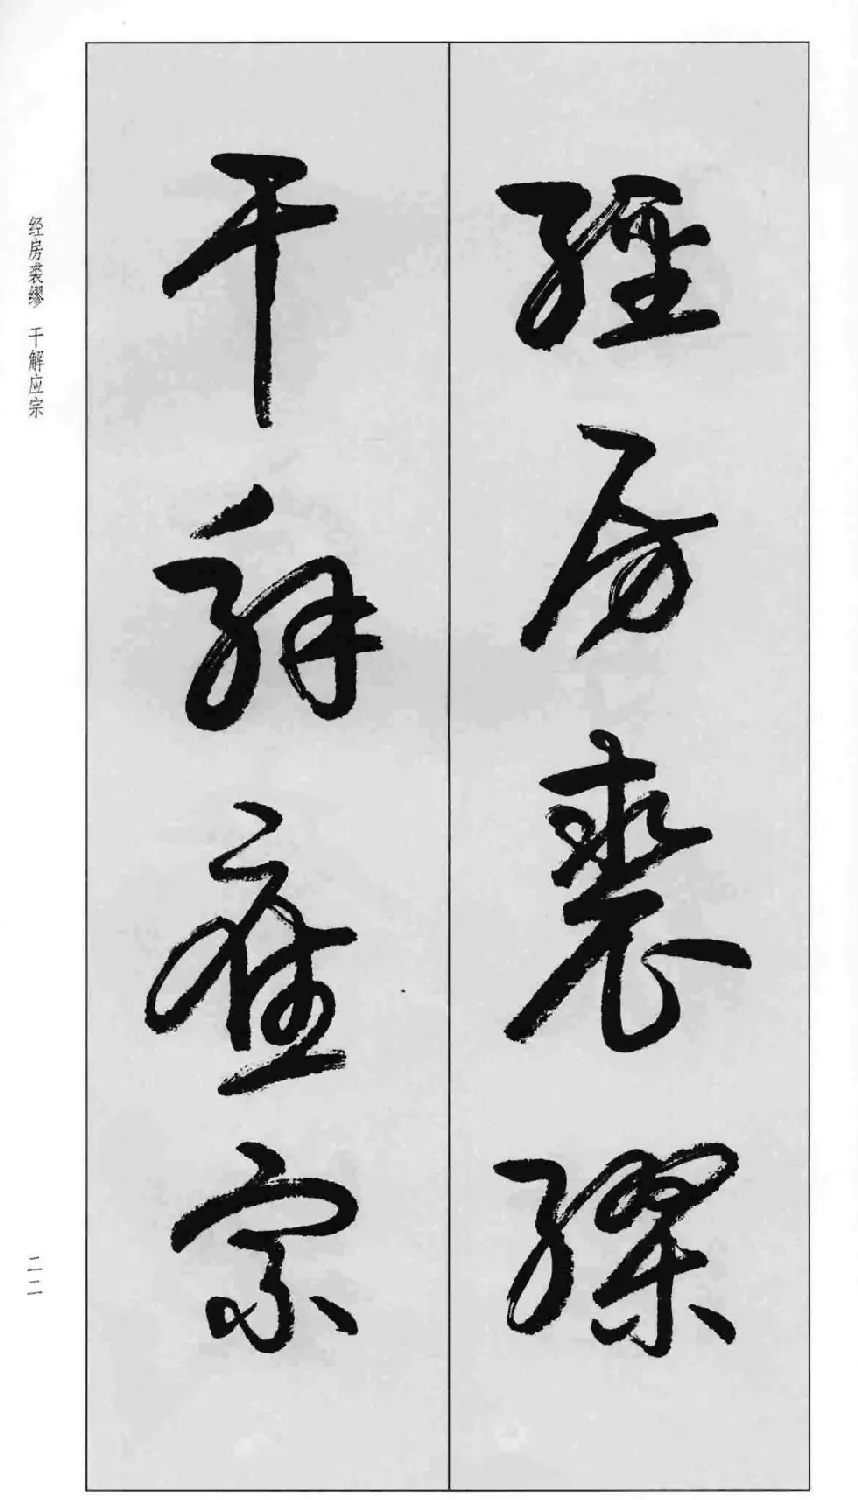 經房裘繆
干解應宗
经房裘缪 干解应宗
二二